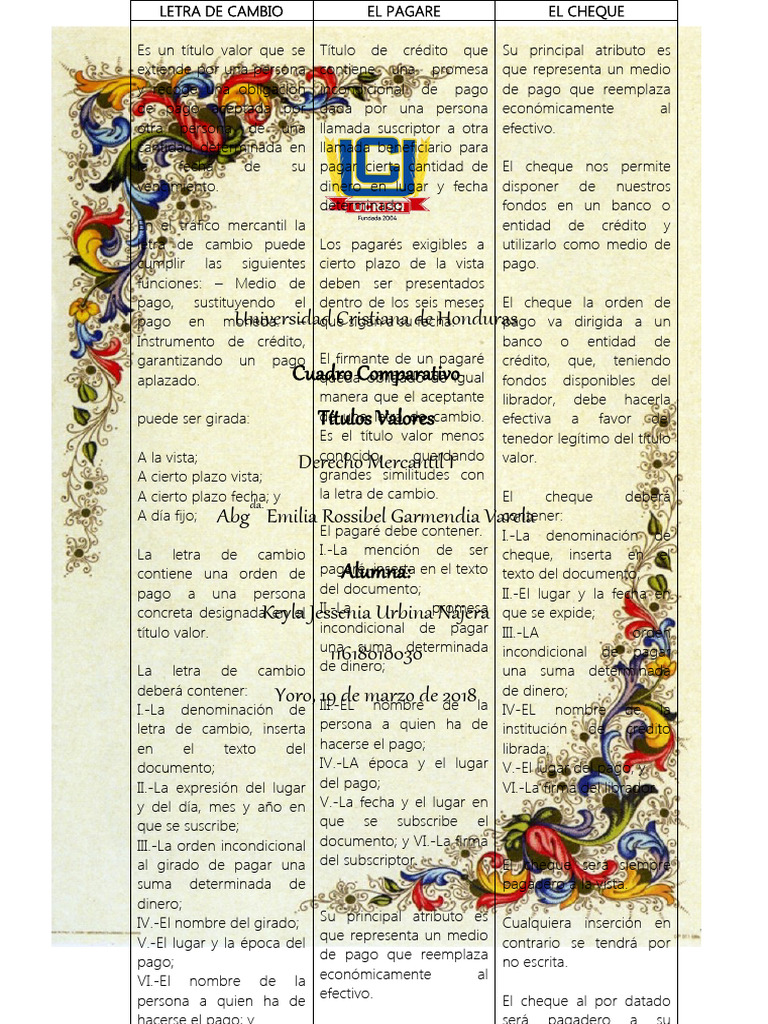 LETRA DE CAMBIO
Es un título valor que se
extiende por una persona
y recoge una obligación
de pago aceptada por
otra persona de una
cantidad determinada en
la fecha de su
vencimiento.
En el tráfico mercantil la
letra de cambio puede
cumplir las siguientes
funciones: – Medio de
pago, sustituyendo el
pago en moneda. –
Instrumento de crédito,
garantizando un pago
aplazado.
puede ser girada:
A la vista;
A cierto plazo vista;
A cierto plazo fecha; y
A día fijo;
La letra de cambio
contiene una orden de
pago a una persona
concreta designada en el
título valor.
La letra de cambio
deberá contener:
I.-La denominación de
letra de cambio, inserta
en el texto del
documento;
II.-La expresión del lugar
y del día, mes y año en
que se suscribe;
III.-La orden incondicional
al girado de pagar una
suma determinada de
dinero;
IV.-El nombre del girado;
V.-El lugar y la época del
pago;
VI.-El nombre de la
persona a quien ha de
hacerse el pago; y
EL PAGARE
Título de crédito que
contiene una promesa
incondicional de pago
dada por una persona
llamada suscriptor a otra
llamada beneficiario para
pagar cierta cantidad de
dinero en lugar y fecha
Los pagarés exigibles a
cierto plazo de la vista
deben ser presentados
dentro de los seis meses
que sigan a su fecha.
El firmante de un pagaré
queda obligado de igual
manera que el aceptante
de una letra de cambio.
Es el título valor menos
conocido, guardando
grandes similitudes con
la letra de cambio.
El pagaré debe contener.
I.-La mención de ser
pagaré, inserta en el texto
del documento;
II.-La promesa
incondicional de pagar
una suma determinada
de dinero;
III.-EL nombre de la
persona a quien ha de
hacerse el pago;
IV.-LA época y el lugar
del pago;
V.-La fecha y el lugar en
que se subscribe el
documento; y VI.-La firma
del subscriptor.
Su principal atributo es
que representa un medio
de pago que reemplaza
económicamente al
efectivo.
EL CHEQUE
Su principal atributo es
que representa un medio
de pago que reemplaza
económicamente al
efectivo.
El cheque nos permite
disponer de nuestros
fondos en un banco o
entidad de crédito y
utilizarlo como medio de
pago.
El cheque la orden de
pago va dirigida a un
banco o entidad de
crédito, que, teniendo
fondos disponibles del
librador, debe hacerla
efectiva a favor del
tenedor legítimo del título
valor.
El cheque deberá
contener:
I.-La denominación de
cheque, inserta en el
texto del documento;
II.-El lugar y la fecha en
que se expide;
III.-LA orden
incondicional de pagar
una suma determinada
de dinero;
IV-EL nombre de la
institución de crédito
librada;
V.-El lugar del pago, y,
VI.-La firma del librador.
El cheque será siempre
pagadero a la vista.
Cualquiera inserción en
contrario se tendrá por
no escrita.
El cheque al por datado
será pagadero a su
Fundada 2004
Universidad Cristiana de Honduras
Cuadro Comparativo
Títulos Valores
Derecho Mercantil I
Abg da. Emilia Rossibel Garmendia Varela
Alumna:
Keyla Jessenia Urbina Nájera
11618010030
Yoro, 19 de marzo de 2018